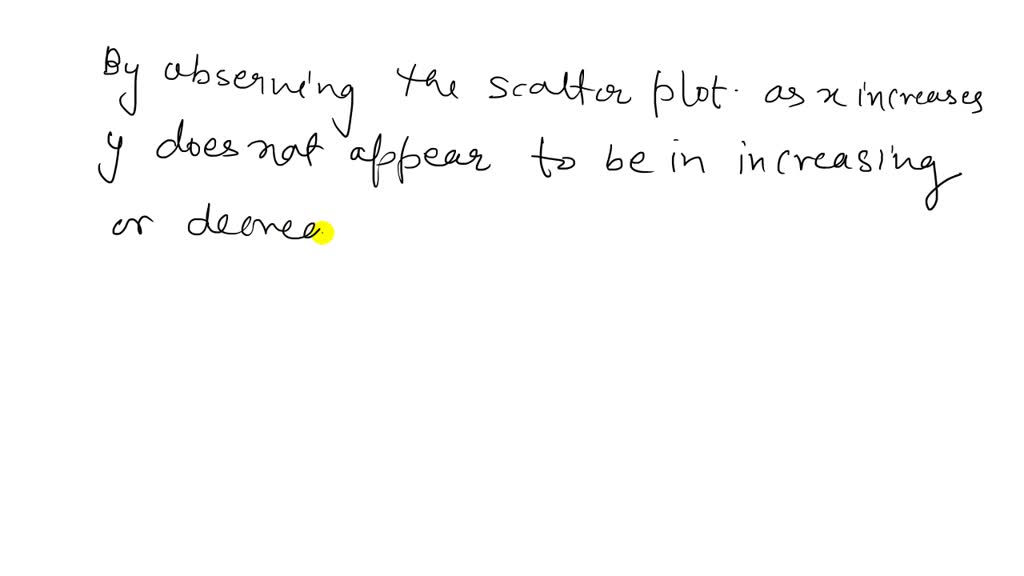 By observing the scatter plot. as x increases
y does not appear to be in increasing
or decrea